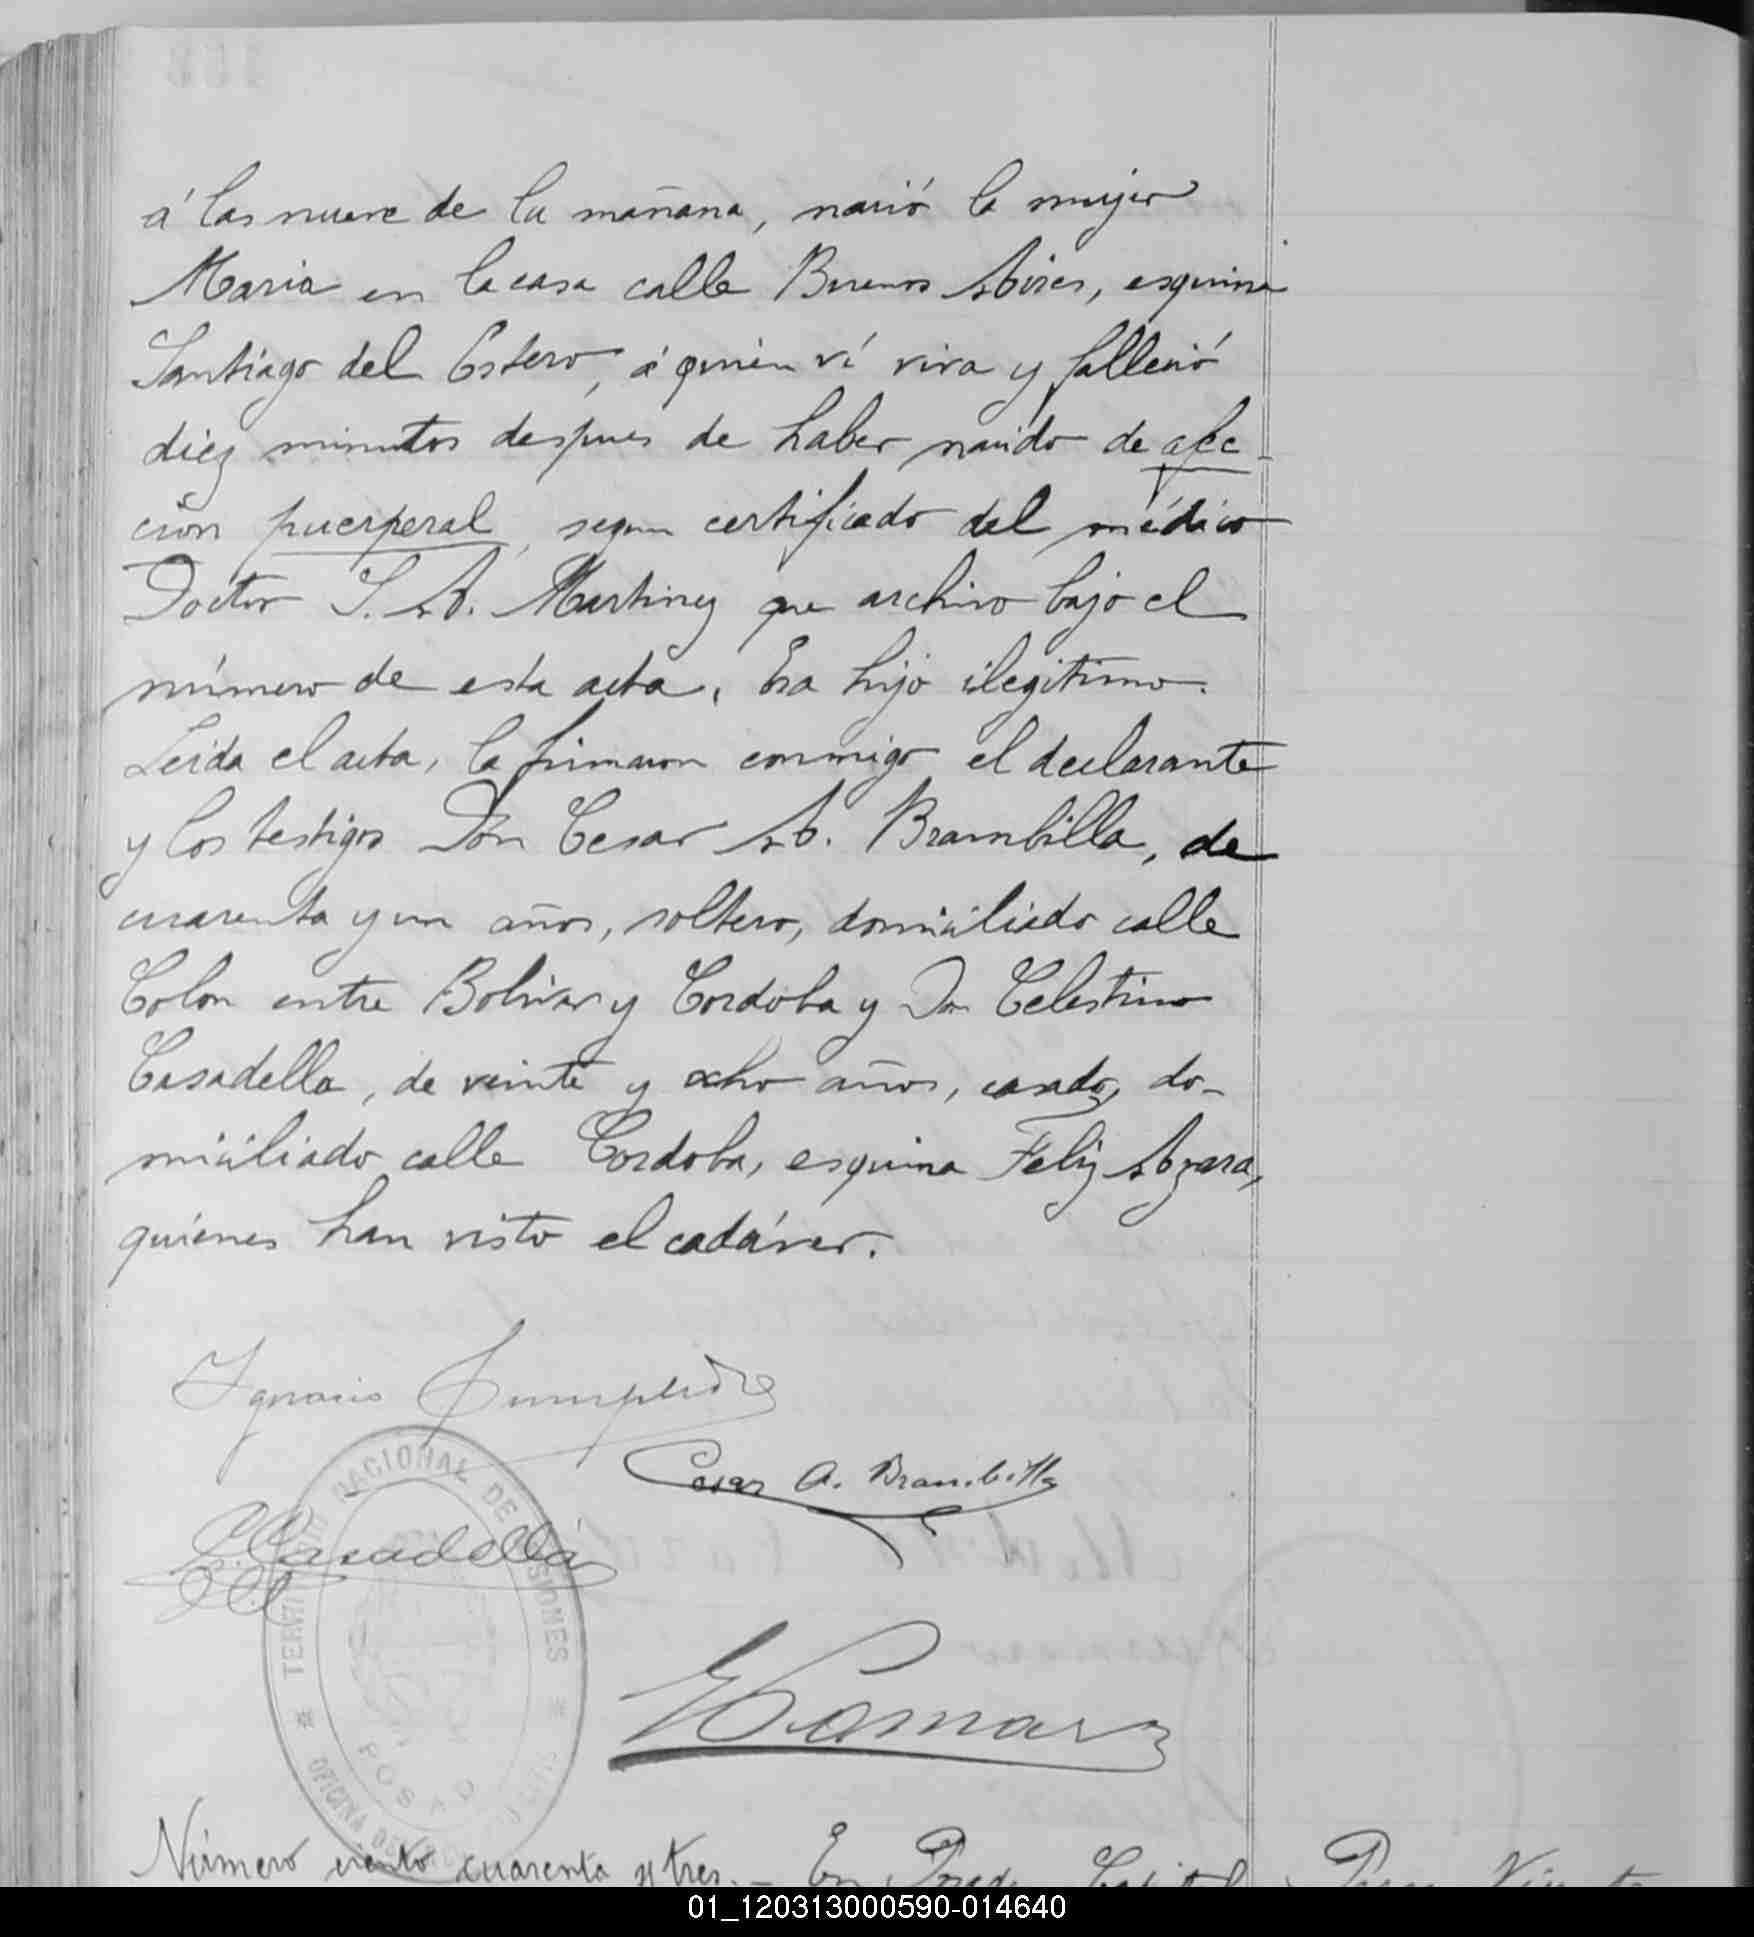 á las nueve de la mañana, nació la mujer
Maria en la casa calle Buenos Aires, esquina
Santiago del Estero, á quien ví viva y falleció
diez minutos despues de haber nacido de afec-
ción puerperal, segun certificado del médico
Doctor S. A. Martinez que archivo bajo el
número de esta acta. Era hijo ilegítimo.
Leida el acta, la firmaron conmigo el declarante
y los testigos Don Cesar A. Brambilla, de
cuarenta y un años, soltero, domiciliado calle
Colon entre Bolivar y Cordoba y Don Celestino
Casadella, de veinte y ocho años, casado, do-
miciliado calle Cordoba, esquina Feliz Azara,
quiénes han visto el cadáver.
Ignacio
Cesar A. Brambilla
Casadellá
TERRITORIO NACIONAL DE MISIONES
POSADAS
OFICINA DEL
Número ciento cuarenta y tres.- En Posadas Capital
01_120313000590-014640